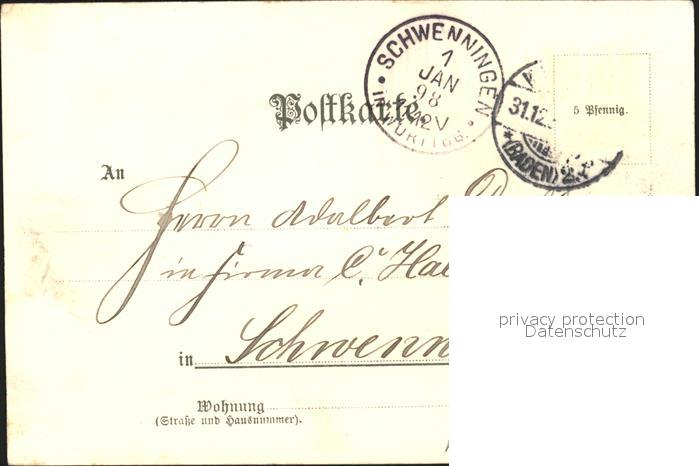 SCHWENNINGEN
1
JAN
98
12V
i/WÜRTTBG.
31.12.
(BADEN) 2.
5 Pfennig.
Postkarte.
An
Herrn Adalbert
in Firma C. Hal
in Schwenn
Wohnung
(Straße und Hausnummer).
privacy protection
Datenschutz